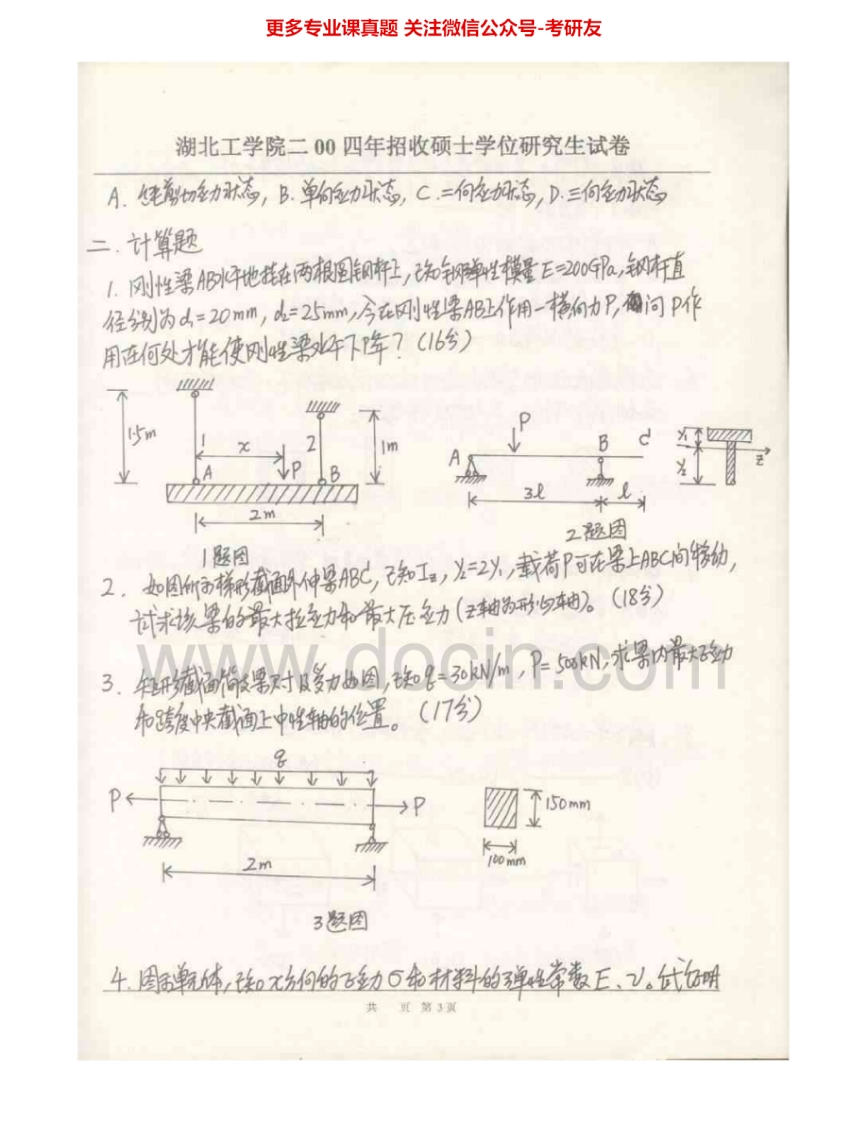 更多专业课真题 关注微信公众号-考研友
湖北工学院二00四年招收硕士学位研究生试卷
A. 纯剪切应力状态, B. 单向应力状态, C. 二向应力状态, D. 三向应力状态
二. 计算题
1. 刚性梁AB水平地挂在两根圆钢杆上, 已知钢弹性模量E=200GPa, 钢杆直
径分别为d₁=20mm, d₂=25mm, 今在刚性梁AB上作用一横向力P, 问P作
用在何处才能使刚性梁水平下降? (16分)
1.5m
1
x
P
2
1m
A
B
2m
1题图
P
A
B
C
3l
l
y₁
y₂
z
2题图
2. 如图所示梯形截面外伸梁ABC, 已知Iz, y₂=2y₁, 载荷P可在梁上ABC间移动,
试求该梁的最大拉应力和最大压应力(z轴为形心轴)。(18分)
www.docin.com
3. 矩形截面简支梁尺寸及受力如图, 已知q=30kN/m, P=500kN, 求梁内最大正应力
和跨度中央截面上中性轴的位置。(17分)
q
P
P
150mm
100mm
2m
3题图
4. 图示单元体, 已知x方向的正应力σ和材料的弹性常数E、ν。试证明
共 页 第3页